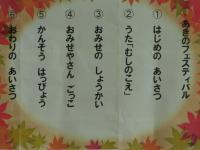 あきのフェスティバル
① はじめの あいさつ
② うた「むしのこえ」
③ おみせの しょうかい
④ おみせやさん ごっこ
⑤ かんそう はっぴょう
⑥ おわりの あいさつ